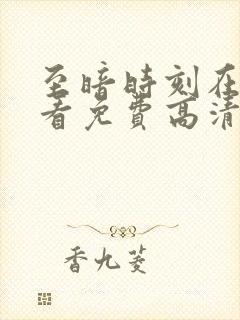 至暗时刻在
看免费高清
香九菱